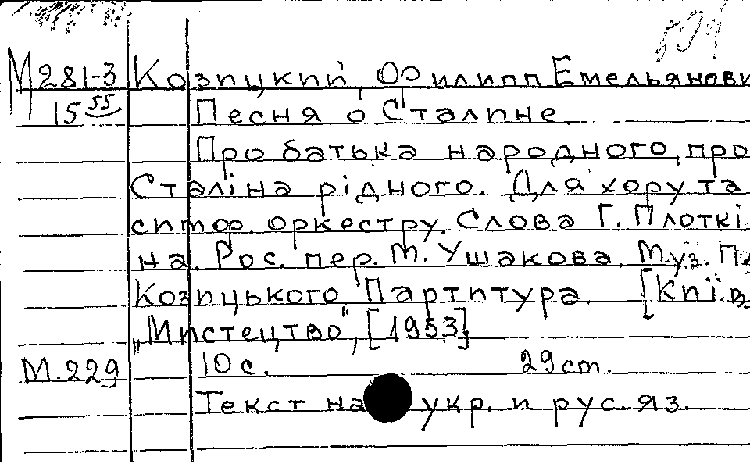 М281-3 Козицкий, Филипп Емельянови
15 55 Песня о Сталине.
Про батька народного, про
Сталіна рідного. Для хору та
симф. оркестру. Слова Г. Плоткі
на. Рос. пер. М. Ушакова. Муз. П
Козицького. Партитура. [Київ]
"Мистецтво", [1953]
М.229 10 с. 29 cm.
Текст на укр. и рус. яз.